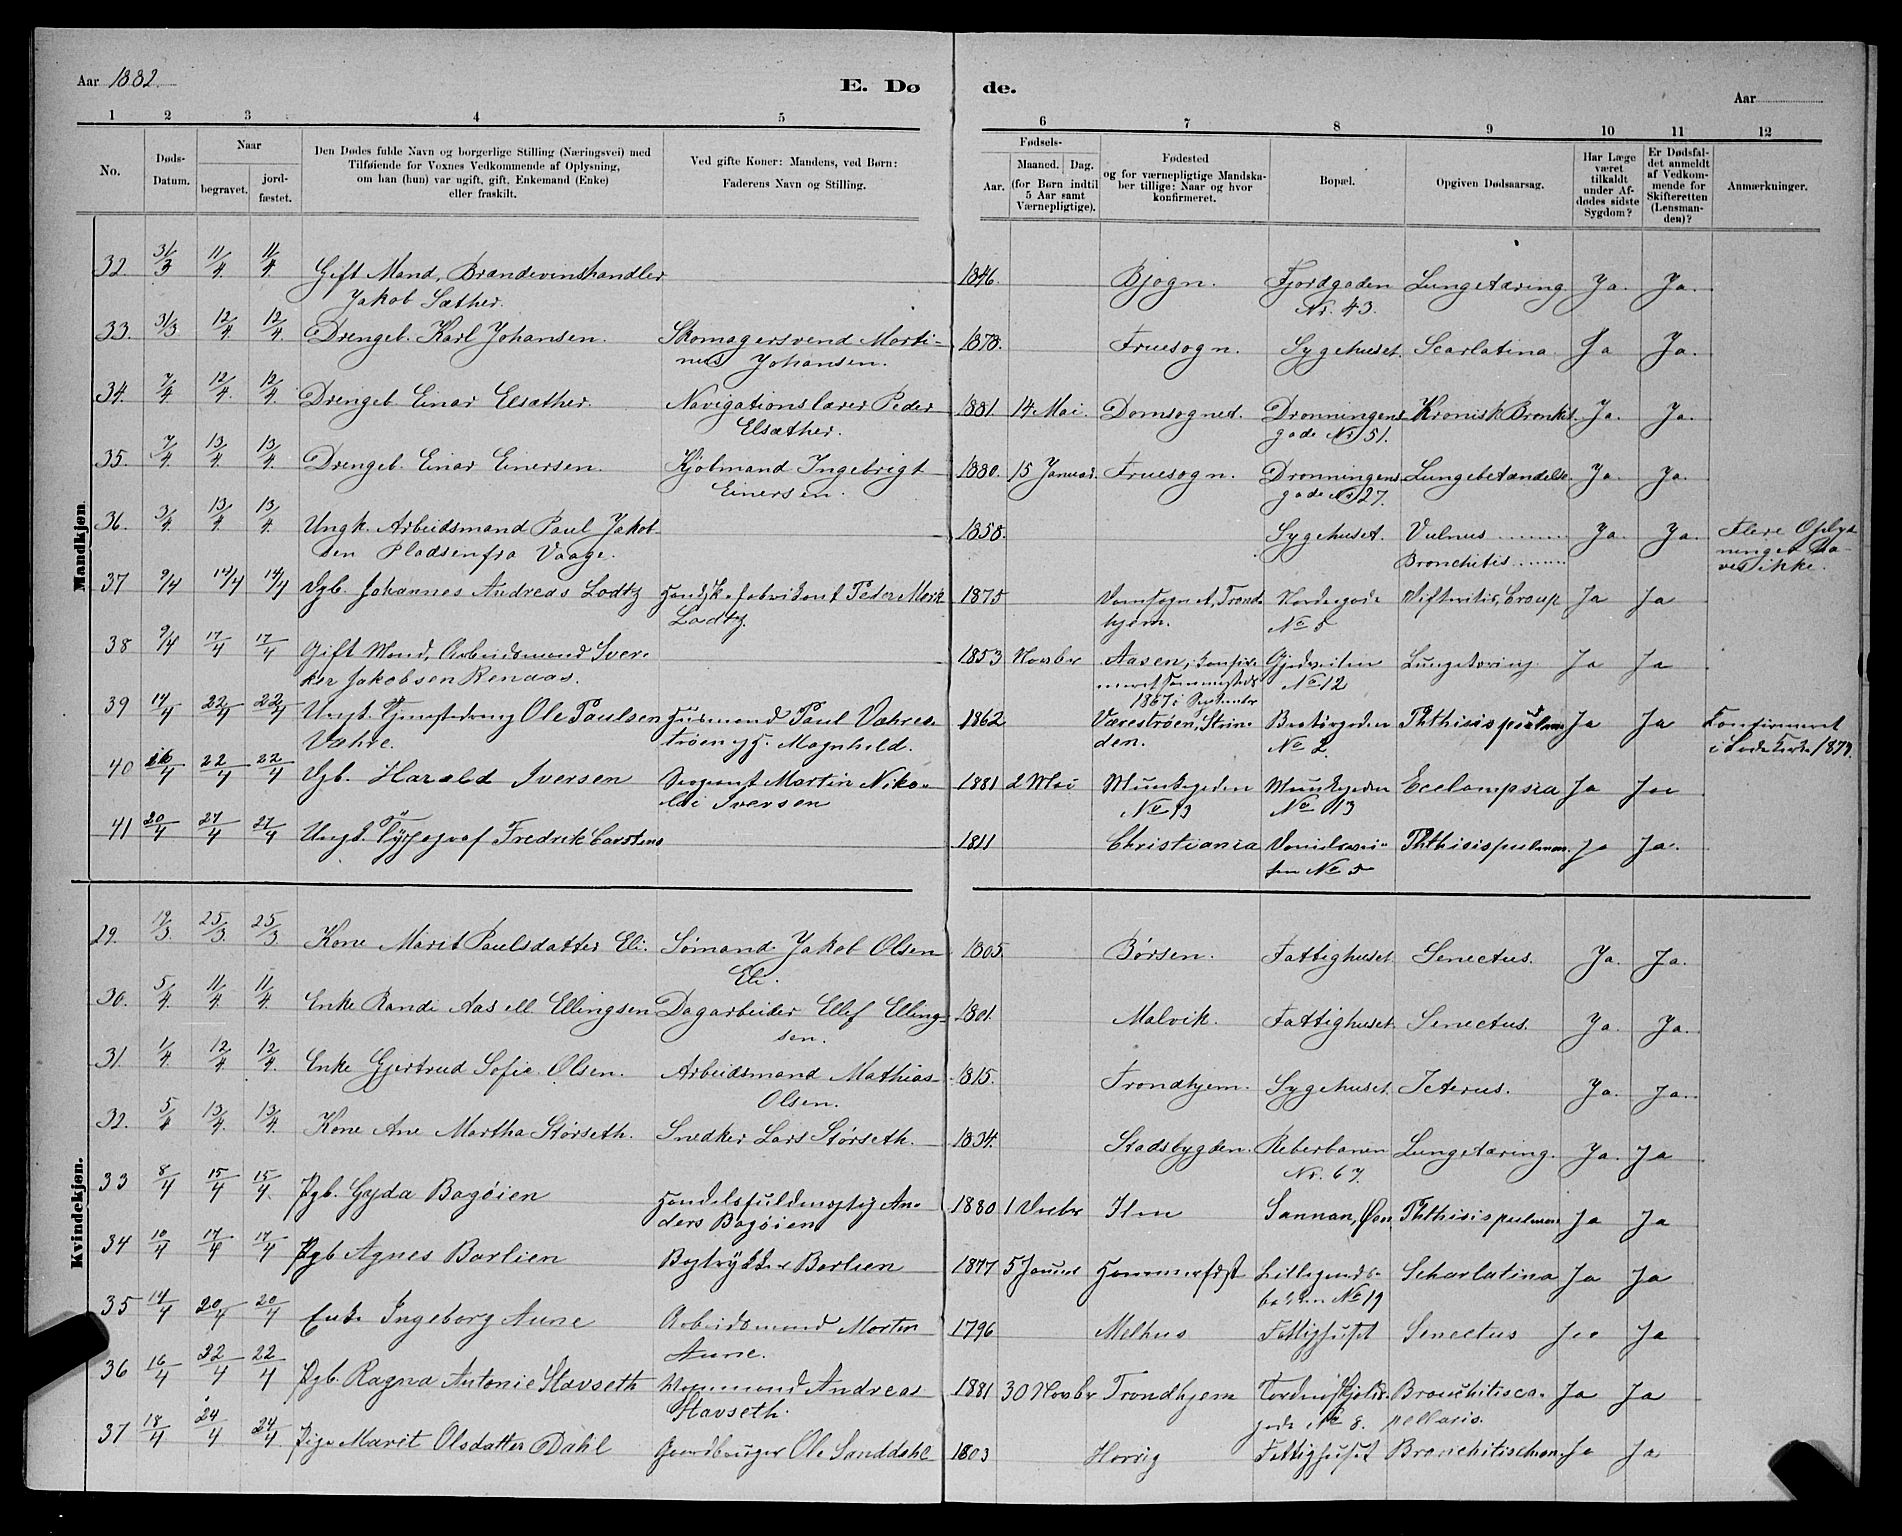 Aar 1882.
E. Døde.
Aar
1 2 3 4 5 6 7 8 9 10 11 12
No.
Døds-Datum.
Naar
begravet.
jordfæstet.
Den Dødes fulde Navn og borgerlige Stilling (Næringsvei) med
Tilføiende for Voxnes Vedkommende af Oplysning,
om han (hun) var ugift, gift, Enkemand (Enke)
eller fraskilt.
Ved gifte Koner: Mandens, ved Børn:
Faderens Navn og Stilling.
Fødsels-
Aar.
Maaned.
Dag.
(for Børn indtil
5 Aar samt
Værnepligtige).
Fødested
og for værnepligtige Mandska-
ber tillige: Naar og hvor
konfirmeret.
Bopæl.
Opgiven Dødsaarsag.
Har Læge
været
tilkaldt
under Af-
dødes sidste
Sygdom?
Er Dødsfal-
det anmeldt
af Vedkom-
mende for
Skifteretten
(Lensman-
den)?
Anmærkninger.
Mandkjøn.
32. 31/3 11/4 11/4 Gift Mand, Brændevinshandler 1846. Bjogn. Fjordgaden Lungetæring Ja. Ja.
Jakob Sæther. Nr. 43.
33. 31/3 12/4 12/4 Drengeb. Karl Johansen. Skomagersvend Marti- 1878. Fruesogn. Sygehuset. Scarlatina. Ja Ja.
nus Johansen.
34. 7/4 12/4 12/4 Drengeb. Einar Elsæther. Navigationslærer Peder 1881. 14 Mai. Domsognet. Dronningens Kronisk Bronkit. Ja. Ja.
Elsæther. gade No 51.
35. 7/4 13/4 13/4 Drengeb. Einar Einersen. Kjøbmand Ingebrigt 1880. 15 Januar. Fruesogn. Dronningens Lungebetændelse. Ja. Ja.
Einersen. gade No 27.
36. 3/4 13/4 13/4 Ungk. Arbeidsmand Paul Jakob- 1858. Sygehuset. Vulnus Ja. Ja. Flere Oplys-
sen Pladsen fra Vaage. Bronchitis ninger ha-
ves ikke.
37 9/4 14/4 14/4 Dgb. Johannes Andreas Lodtz Handskefabrikant Peder Mørk 1875 Domsognet, Trond- Nordregade Difteritis, Croup Ja Ja
Lodtz. hjem. No 5
38 9/4 17/4 17/4 Gift Mand, Arbeidsmand Sver- 1853 Novbr Aasen, konfir- Gjedveiten Lungetæring. Ja Ja
ker Jakobsen Renaas. meret sammesteds No 12
1867 i September
39 14/4 22/4 22/4 Ungk. Tjenestedreng Ole Paulsen Husmand Paul Væhres- 1862 Værestrøen, Strin- Bratørgaden Phthisis pulmon Ja Ja Konfirmeret
Væhre. trøen og Magnhild. den. No 2 i Lade Kirke 1877.
40 16/4 22/4 22/4 Dgb. Harald Iversen Sergeant Martin Niko- 1881 2 Mai Munkegaden Munkegaden Eclampsia Ja Ja
lai Iversen No 13 No 13
41 20/4 27/4 27/4 Ungk. Typograf Fredrik Carstens 1811 Christiania Phthisis pulmon. Ja Ja.
No 5
Kvindekjøn.
29. 19/3 25/3 25/3 Kone Marit Paulsdatter Eli. Sømand Jakob Olsen 1805. Børsen. Fattighuset Senectus. Ja. Ja.
Eli.
30. 5/4 11/4 11/4 Enke Randi Aasell Ellingsen Dagarbeider Ellef Elling- 1801. Malvik. Fattighuset Senectus. Ja. Ja.
sen.
31. 1/4 12/4 12/4 Enke Gjertrud Sofie Olsen. Arbeidsmand Mathias 1815. Trondhjem. Sygehuset. Icterus. Ja. Ja.
Olsen.
32. 5/4 13/4 13/4 Kone Ane Martha Størseth. Snedker Lars Størseth. 1834. Stadsbygden. Reberbanen Lungetæring. Ja. Ja
Nr. 67.
33 8/4 15/4 15/4 Pgb. Gyda Bagøien Handelsfuldmægtig An- 1880 1 Decbr Ilen Sannan, Øen Phthisis pulmon Ja Ja
ders Bagøien
34 10/4 17/4 17/4 Pgb Agnes Borlien Bogtrykker Borlien 1877 5 Januar Hammerfest Lillegaards- Scharlatina Ja Ja
bakken No 19
35 14/4 20/4 20/4 Enke Ingeborg Aune Arbeidsmand Morten 1796 Melhus Fattighuset Senectus Ja Ja
Aune.
36 16/4 22/4 22/4 Pgb. Ragna Antonie Stavseth Vognmand Andreas 1881 30 Novbr Trondhjem Tordenskjolds- Bronchitis ca- Ja Ja
Stavseth. gade No 8. pellaris.
37 18/4 24/4 24/4 Pige Marit Olsdatter Dahl Gaardbruger Ole Sanddahl 1803 Horrig Fattighuset Bronchitis chron. Ja Ja